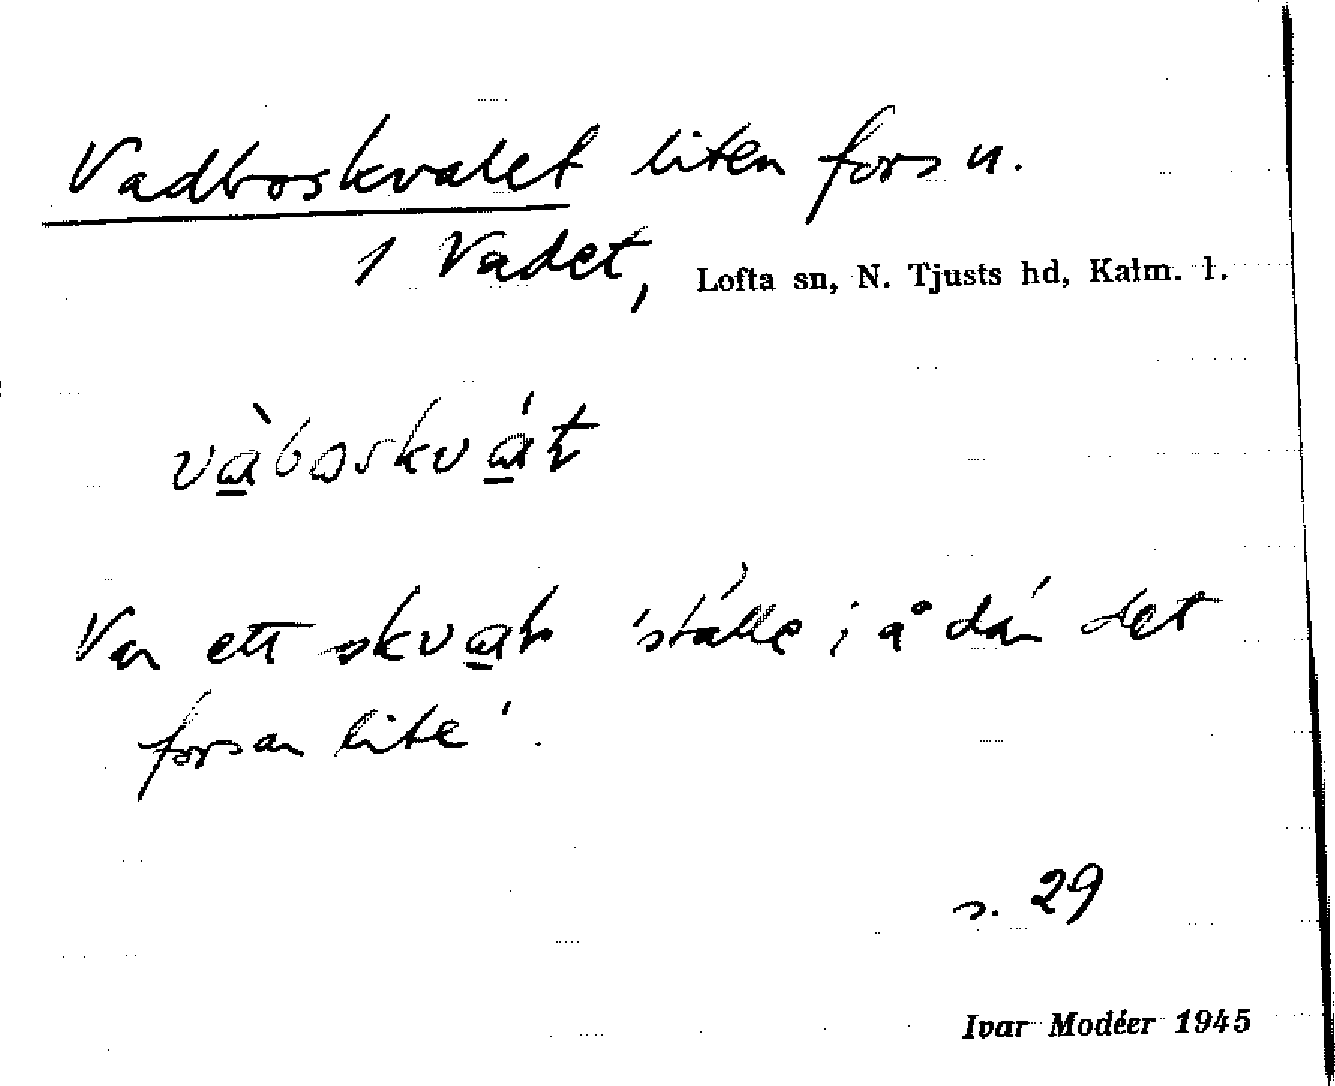 Vadboskvalet liten fors n.
1 Vadet, Lofta sn, N. Tjusts hd, Kalm. l.
Var ett 'ställe i å där det
forsar lite'.
s. 29
Ivar Modéer 1945